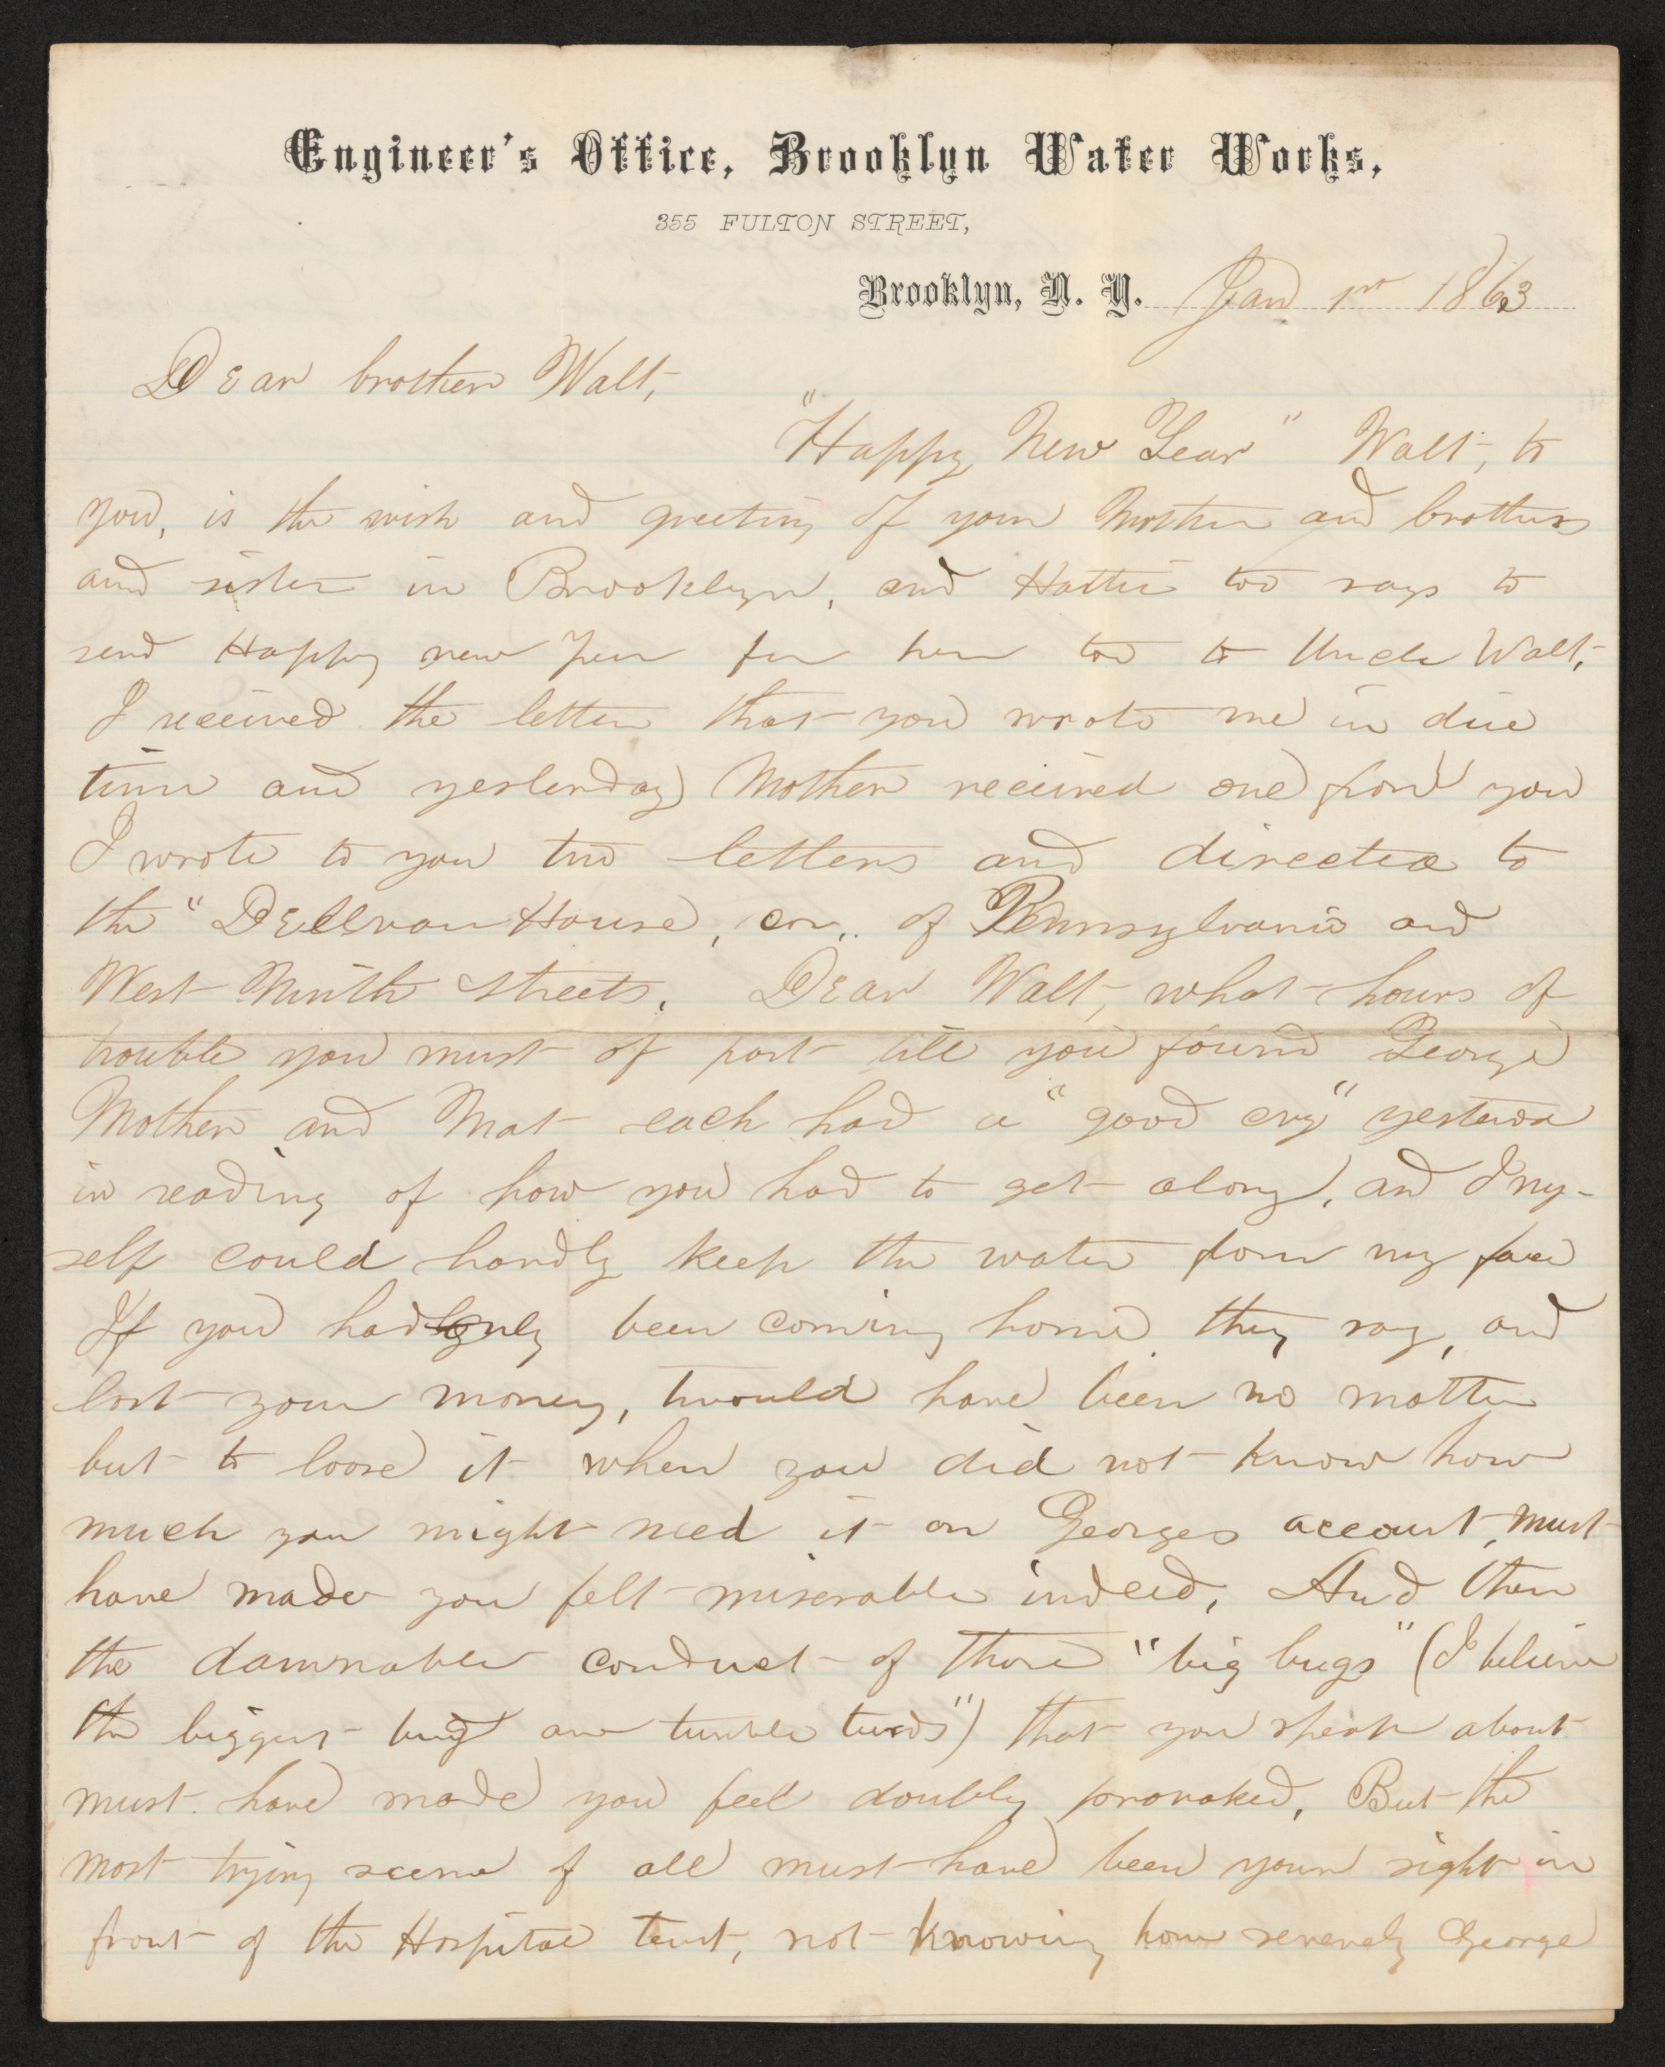 Engineer's Office, Brooklyn Water Works,
355 FULTON STREET,
Brooklyn, N. Y. Jan 1st 1863
Dear brother Walt,
"Happy New Year" Walt, to
you, is the wish and greeting of your Mother and brothers
and sister in Brooklyn, and Hattie too says to
send Happy new Year for her too to Uncle Walt,
I received the letter that you wrote me in due
time and yesterday Mother received one from you
I wrote to you two letters and directed to
the "Dellvan House, cor. of Pennsylvania and
West Ninth streets. Dear Walt, what hours of
trouble you must of past till you found George
Mother and Mat each had a "good cry" yesterda
in reading of how you had to get along, and I my-
self could hardly keep the water from my face
If you had only been coming home, they say, and
lost your money, twould have been no matter
but to loose it when you did not know how
much you might need it on Georges account, must
have made you felt miserable indeed, And then
the damnable conduct of those "big bugs" (I believe
the biggest bug are tumble turds") that you speak about
must have made you feel doubly provoked, But the
most trying scene of all must have been your sight in
front of the Hospital tent, not knowing how severely George